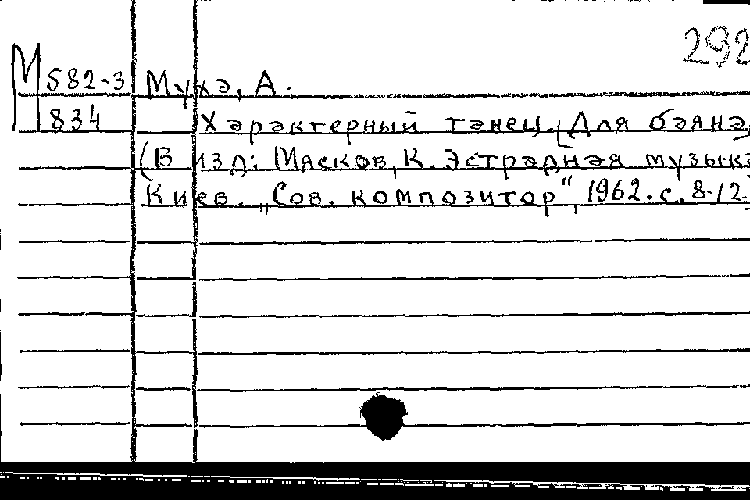 292
М 582-3 Муха, А.
834 Характерный танец. [Для баяна]
(В изд: Мясков, К. Эстрадная музыка
Киев. „Сов. композитор“, 1962. с. 8-12.